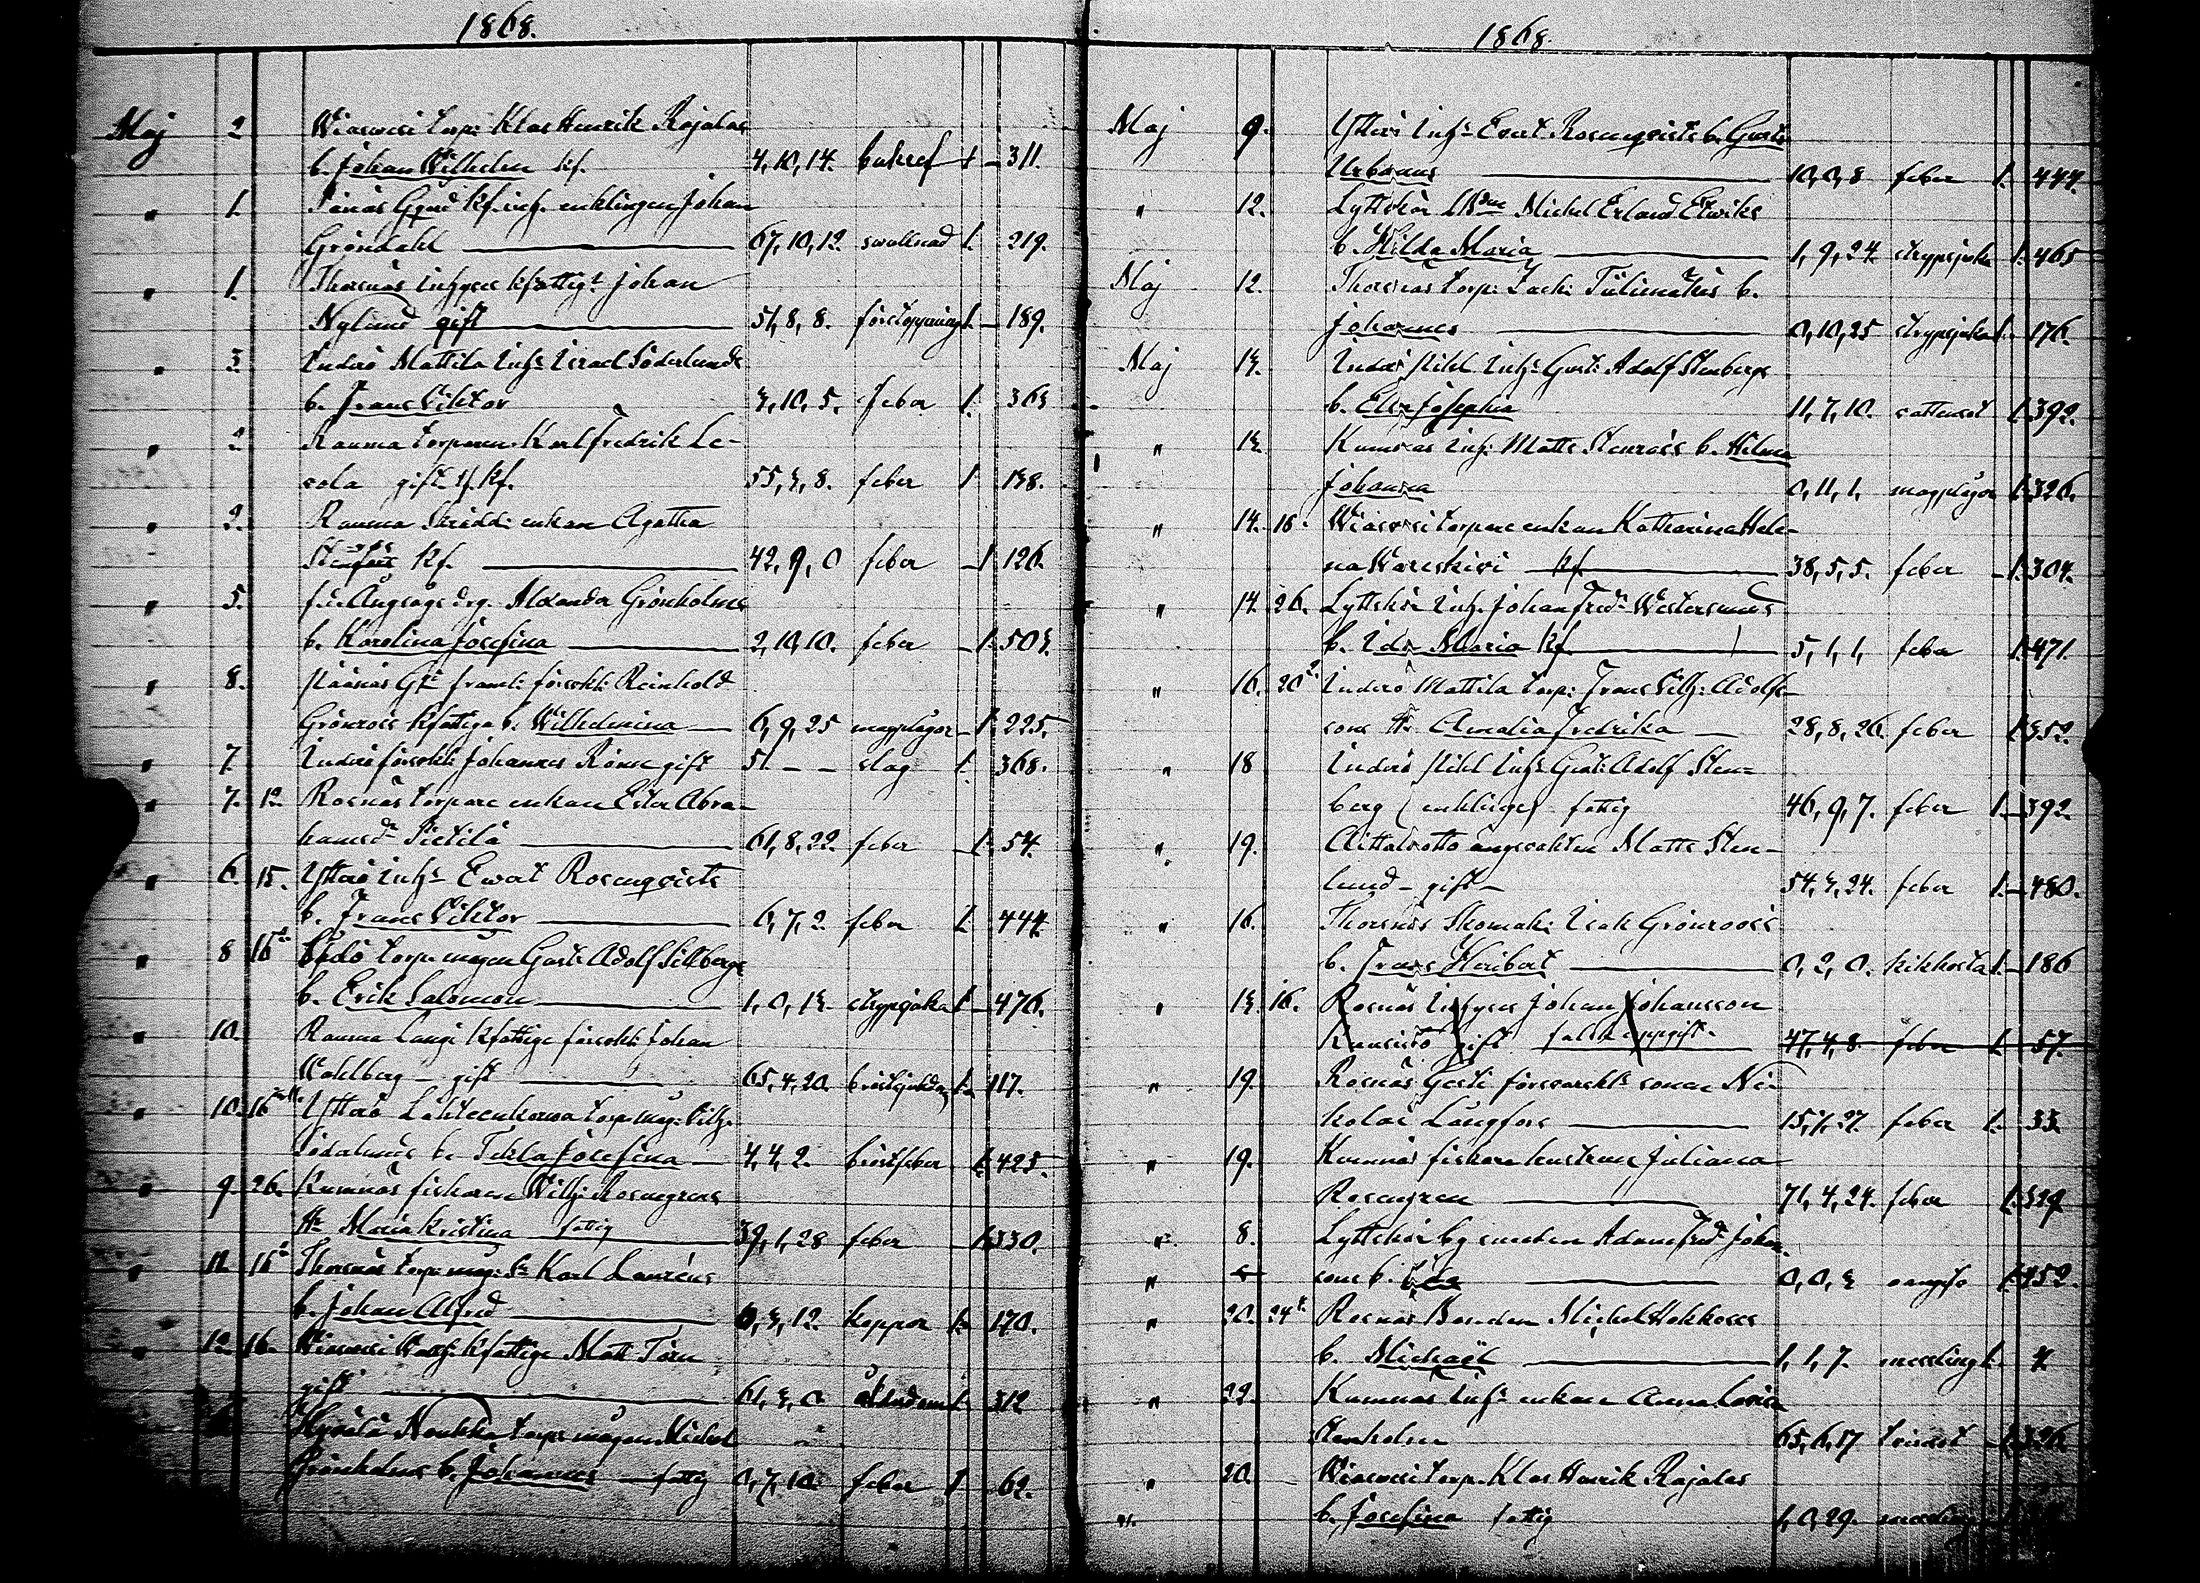 1868.
Maj 2 Wiasvesi torp: Klas Henrik Rajalas
b. Johan Wilhelm kf. 4,10,14. bukref 1 311.
" 1. kf. inh. enklingen Johan
Gröndahl 67,10,12. swullnad 1. 219.
" 1. Thorsnäs Inhysen kfattig: Johan
Nyland gift 51,8,8. förstoppning 1. 189.
" 3. Inderö Mattila Inh: Israel Söderlunds
b. Frans Viktor 3,10,5. feber 1. 363
" 2. Rauma torparen Karl Fredrik Le-
vola gift kf. 55,3,8. feber 1. 138.
" 2. Rauma enkan Agatha
kf. 42,9,0 feber 1. 126.
" 5. Ångsågs drg. Alexander Grönholms
b. Karolina Josefina 2,10,10. feber 1. 503.
" 8. framl: försvkl: Reinhold
Grönroos kfattiga b. Wilhelmina 6,9,25 magplågor 1. 225.
" 7. Inderö försvkl: Johannes gift 51 – – slag 1. 368.
" 7. 12. Rosnäs torpare enkan Ester Abra-
hamsdr Pietilä 61,8,22. feber 1. 54.
" 6. 15. Ytterö Inh: Ewert Rosenqvists
b. Frans Viktor 6,7,2. feber 1. 444.
" 8 torp: mågen Gust: Adolf Sillbergs
b. Erik Salomon 1,0,13. strypsjuka 1. 476.
" 10. Rauma Langi kfattige försvkl: Johan
Wahlberg – gift 65,4,20. bröstsjukdom 1. 117.
" 10. 16 Ytterö torp: måg: Vilh:
Söderlunds b. Tekla Josefina 4,4,2. bröstfeber 1. 425.
" 9. 26. Kumnäs fiskaren Wilh: Rosengrens
Hu Maria Kristina fattig 39,1,28 feber 1. 330.
" 12. 16 Thorsnäs torp: måg: Karl Lauréns
b. Johan Alfred 0,3,12. koppor 1. 170.
" 12. 16. Wiasvesi kfattige Matt Törn
gift 61,3,0 ålderdom 1. 312
torp: mågen Michel
Grönholms b. Johannes – fattig 0,7,10. feber 1. 62.
1868
Maj 9. Ytterö Inh: Ewert Rosenqvists b. Gustaf
Urbanus 10,0,8 feber 1. 444.
" 12. Lyttskär Michel Erland
b. Hilda Maria 1,9,24 strypsjuka 1. 465
Maj 12. Thorsnäs torp: Isak: Tulimäkis b.
Johannes 0,10,25 strypsjuka 1. 176.
Maj 13. Inderö Inh: Gust: Adolf Stenbergs
b. Eva Josephia 11,7,10. vattusot 1. 392.
" 13. Kumnäs Inh: Matts Stenroos b. Hilma
Johanna 0,11,1, magplågor 1. 326.
" 14. 16. Wiasvesi torpare enkan Katharina Hele-
na kf. 38,5,5. feber 1. 304.
" 14. 26. Lyttskär Inh. Johan Fred: Westerlunds
b. Ida Maria kf. 5,1,1, feber 1. 471.
" 16. 20 Inderö Mattila torp: Frans Vilh: Adolfs-
sons Hu Amalia Fredrika 28,8,20. feber 1. 352.
" 18 Inderö Inh: Gust: Adolf Sten-
berg (enklinge) fattig 46,9,7. feber 1. 392.
" 19. Matts Sten-
lund – gift – 54,3,24. feber 1. 480.
" 16. Thorsnäs Skomak: Isak Grönroos's
b. Frans Heribert 0,2,0. kikhosta 1. 186
" 13. 16. Rosnäs Inhysen Johan Johansson
gift falsk uppgift 47,4,8. feber 1. 57.
" 19. Rosnäs försvarskls sonen Ni-
kolai Långfors 15,7,27. feber 1. 33.
" 19. Kumnäs fiskare hustrun Juliana
Rosengren 71,4,24. feber 1. 329
" 8. Lyttskär by smeden Adam Fred: Johans-
" sons b. Ida 0,0,3 1. 452.
" 20. 24 Rosnäs Bonden Michel Hokkosas
b. Michaël 1,1,7. messling 1. 4.
" 22. Kumnäs Inh: enkan Anna Lovisa
Stenholm 65,6,17 1. 326
" 20. Wiasvesi torp. Klas Henrik Rajalas
b. Josefina fattig 1,0,29.